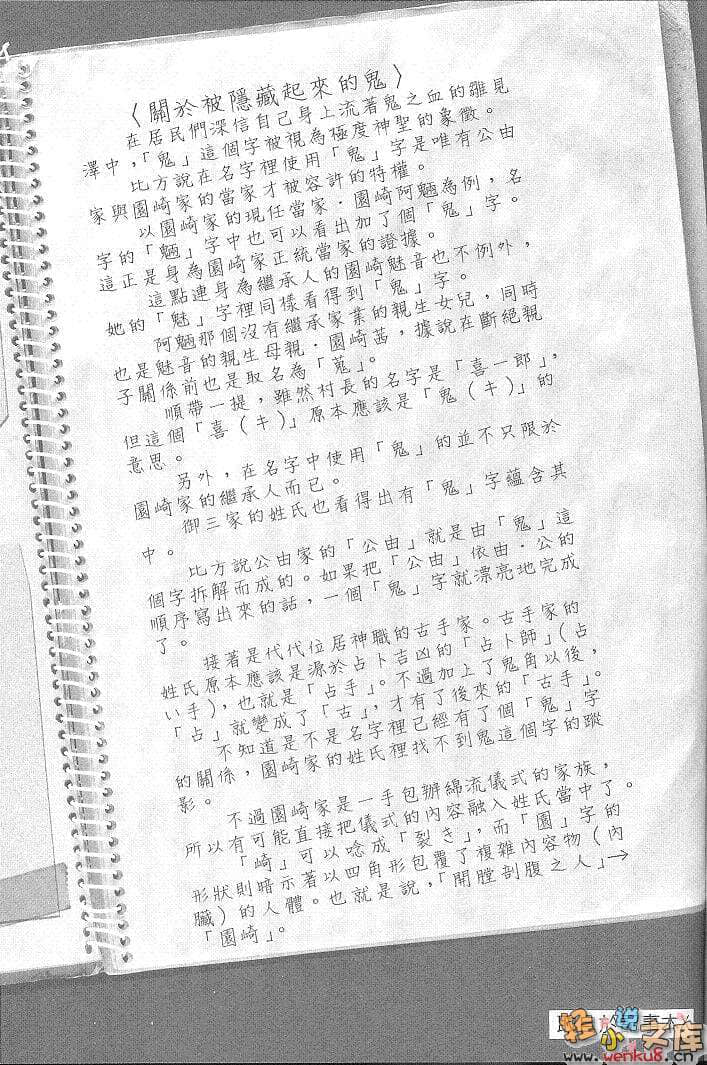 〈關於被隱藏起來的鬼〉
在居民們深信自己身上流著鬼之血的雛見
澤中，「鬼」這個字被視為極度神聖的象徵。
比方說在名字裡使用「鬼」字是唯有公由
家與園崎家的當家才被容許的特權。
以園崎家的現任當家．園崎阿魎為例，名
字的「魎」字中也可以看出加了個「鬼」字。
這正是身為園崎家正統當家的證據。
這點連身為繼承人的園崎魅音也不例外，
她的「魅」字裡同樣看得到「鬼」字。
阿魎那個沒有繼承家業的親生女兒，同時
也是魅音的親生母親．園崎茜，據說在斷絕親
子關係前也是取名為「蒐」。
順帶一提，雖然村長的名字是「喜一郎」，
但這個「喜（キ）」原本應該是「鬼（キ）」的
意思。
另外，在名字中使用「鬼」的並不只限於
園崎家的繼承人而已。
御三家的姓氏也看得出有「鬼」字蘊含其
中。
比方說公由家的「公由」就是由「鬼」這
個字拆解而成的。如果把「公由」依由．公的
順序寫出來的話，一個「鬼」字就漂亮地完成
了。
接著是代代位居神職的古手家。古手家的
姓氏原本應該是源於占卜吉凶的「占卜師」（占
い手），也就是「占手」。不過加上了鬼角以後，
「占」就變成了「古」，才有了後來的「古手」。
不知道是不是名字裡已經有了個「鬼」字
的關係，園崎家的姓氏裡找不到鬼這個字的蹤
影。
不過園崎家是一手包辦綿流儀式的家族，
所以有可能直接把儀式的內容融入姓氏當中了。
「崎」可以唸成「裂き」，而「園」字的
形狀則暗示著以四角形包覆了複雜內容物（內
臟）的人體。也就是說，「開膛剖腹之人」→
「園崎」。
轻小说文库
www.wenku8.cn